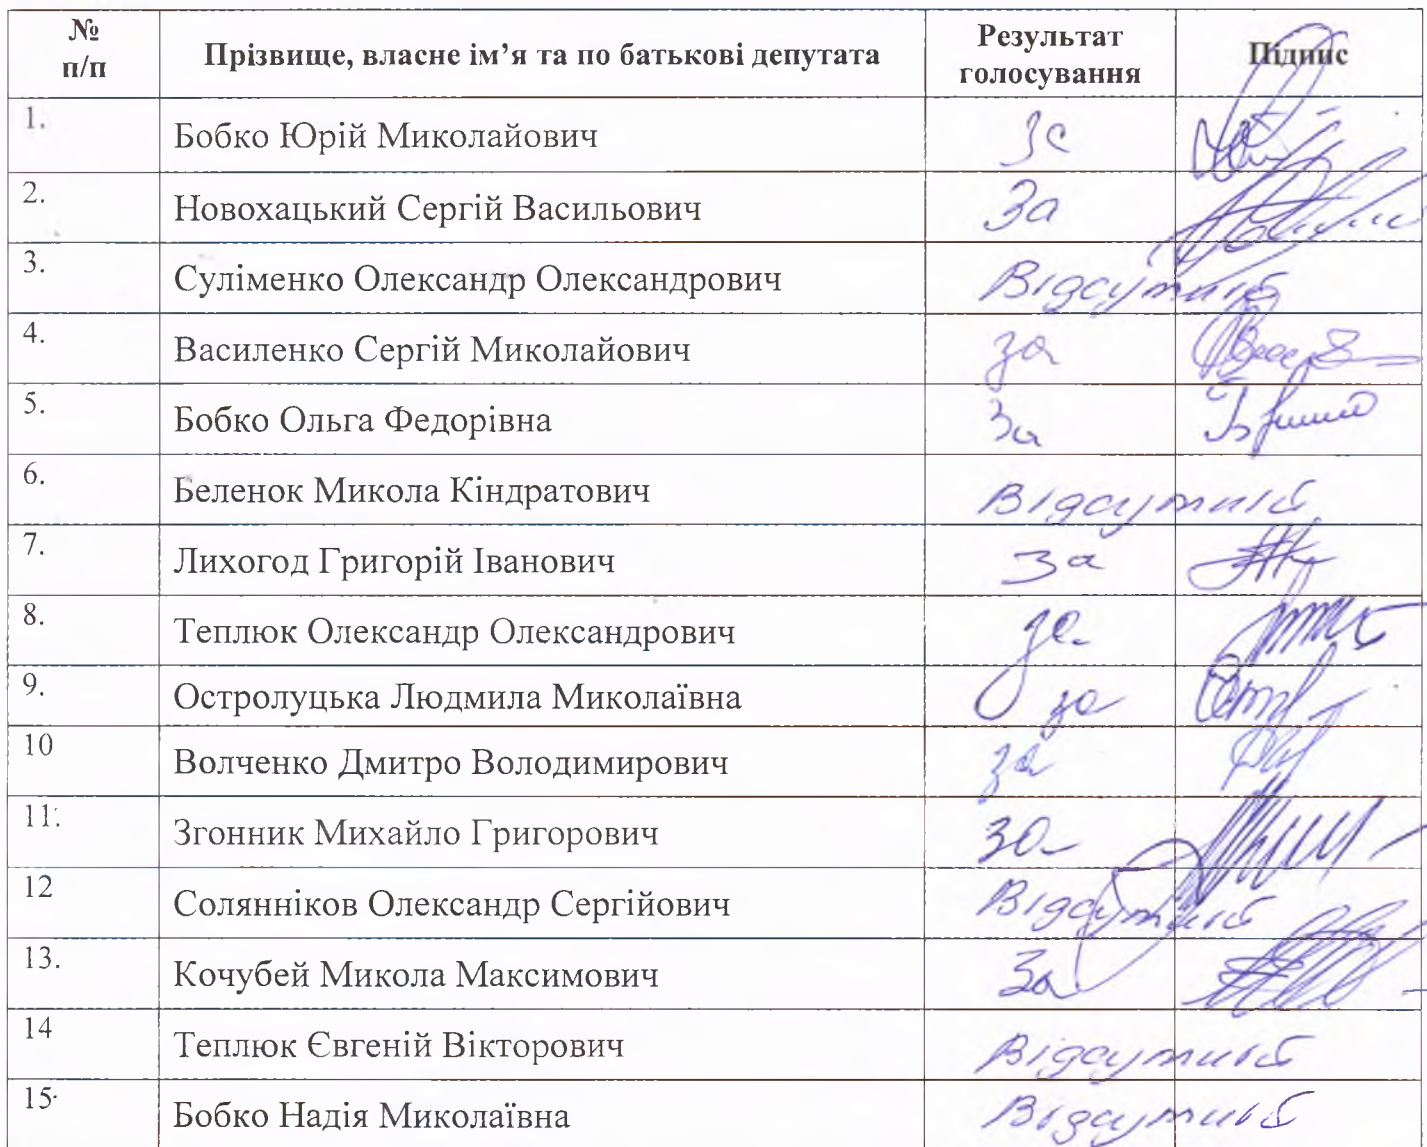 № п/п Прізвище, власне ім’я та по батькові депутата Результат голосування Підпис
1. Бобко Юрій Миколайович За
2. Новохацький Сергій Васильович За
3. Суліменко Олександр Олександрович Відсутній
4. Василенко Сергій Миколайович за
5. Бобко Ольга Федорівна За
6. Беленок Микола Кіндратович Відсутній
7. Лихогод Григорій Іванович За
8. Теплюк Олександр Олександрович за
9. Остролуцька Людмила Миколаївна за
10 Волченко Дмитро Володимирович за
11. Згонник Михайло Григорович за
12 Солянніков Олександр Сергійович Відсутній
13. Кочубей Микола Максимович За
14 Теплюк Євгеній Вікторович Відсутній
15. Бобко Надія Миколаївна Відсутній